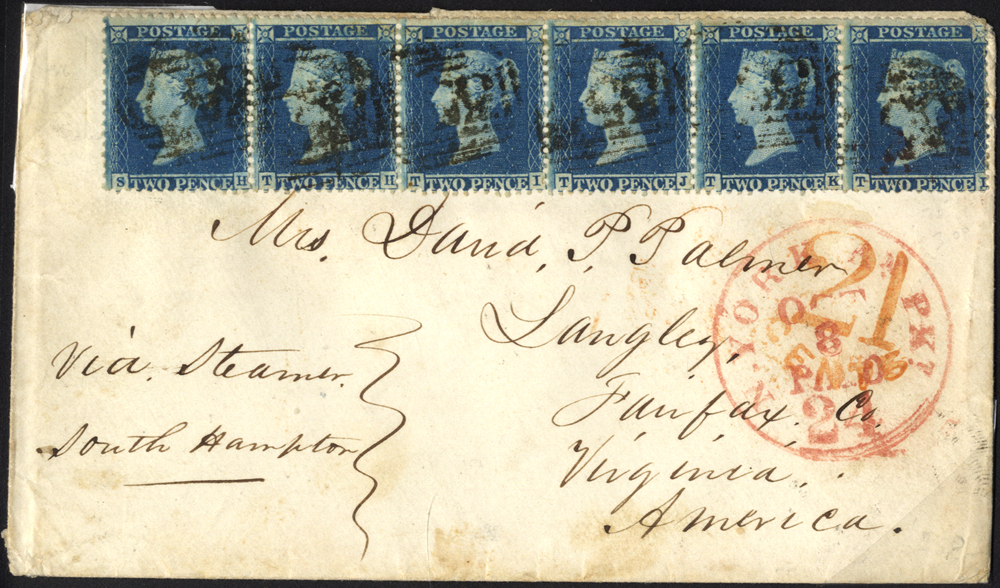 POSTAGE POSTAGE POSTAGE POSTAGE POSTAGE POSTAGE
S TWO PENCE H T TWO PENCE H T TWO PENCE I T TWO PENCE J T TWO PENCE K T TWO PENCE
Mrs. David, P. Palmer
Langley,
Fairfax, Co,
Virginia,
America.
Via. Steamer.
South Hampton
N. YORK AM PKT
OCT
8
PAID
24
21
CENTS